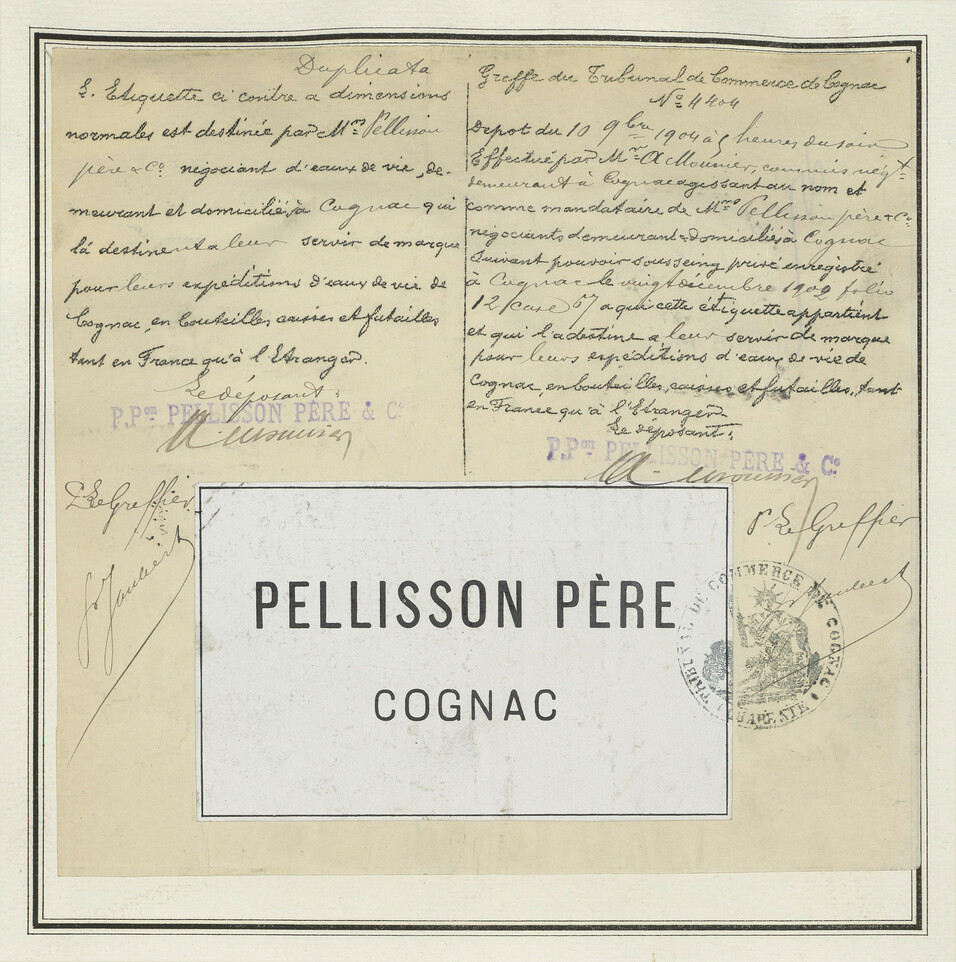 Duplicata
L'Etiquette ci contre a dimensions
normales est destinée par Mrs Pellisson
père & Co negociant d'eaux de vie, de-
meurant et domiciliés à Cognac qui
la destinent a leur servir de marque
pour leurs expéditions d'eaux de vie de
Cognac, en bouteilles caisses et futailles
tant en France qu'à l'Etranger.
Le déposant:
P.Pon PELLISSON PÈRE & Co
A Mounier
P. Le Greffier
Greffe du Tribunal de Commerce de Cognac
No 4404
Depot du 10 9bre 1904 à 5 heures du soir
Effectué par Mr A Mounier, commis négt
demeurant à Cognac agissant au nom et
comme mandataire de Mrs Pellisson père & Co
négociants demeurant & domiciliés à Cognac
suivant pouvoir sous seing privé enregistré
à Cognac le vingt décembre 1902 folio
12 case 57 a qui cette étiquette appartient
et qui l'a destine a leur servir de marque
pour leurs expéditions d'eaux de vie de
Cognac, en bouteilles, caisses et futailles, tant
en France qu'à l'Etranger
Le déposant:
P.Pon PELLISSON PÈRE & Co
A Mounier
P. Le Greffier
PELLISSON PÈRE
COGNAC
TRIBUNAL DE COMMERCE DE COGNAC